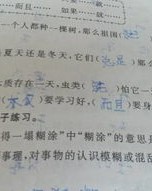 而且…… 如果……就
一个人都种一棵树,那么祖国(
夏天还是冬天,它们(总是)那么
存在一天,虫类(
要学习好,(而且)要身
子练习。
得一塌糊涂”中“糊涂”的意思是
事理,对事物的认识模糊或混乱